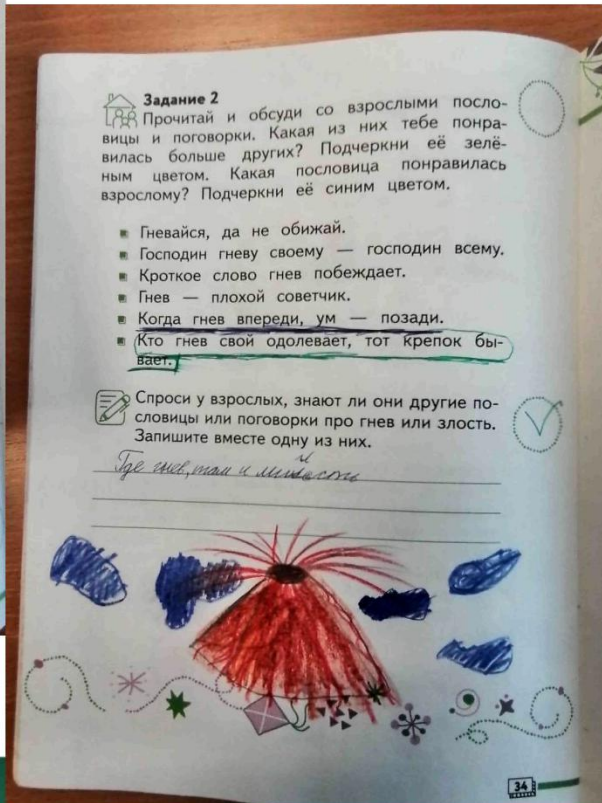 Задание 2
Прочитай и обсуди со взрослыми посло-
вицы и поговорки. Какая из них тебе понра-
вилась больше других? Подчеркни её зелё-
ным цветом. Какая пословица понравилась
взрослому? Подчеркни её синим цветом.
Гневайся, да не обижай.
Господин гневу своему — господин всему.
Кроткое слово гнев побеждает.
Гнев — плохой советчик.
Когда гнев впереди, ум — позади.
Кто гнев свой одолевает, тот крепок бы-
вает.
Спроси у взрослых, знают ли они другие по-
словицы или поговорки про гнев или злость.
Запишите вместе одну из них.
Где гнев, там и милость
34